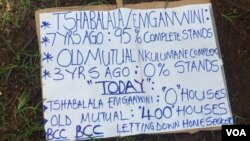 * TSHABALALA/EMGANWINI
* 7YRS AGO: 95% COMPLETE STANDS
* OLD MUTUAL NKULUMANE COMPLEX
* 3YRS AGO: 0% STANDS
"TODAY"
TSHABALALA EMGANWINI: "0" HOUSES
OLD MUTUAL: "400" HOUSES
BCC BCC LETTING DOWN HOME SEEKERS
VOA